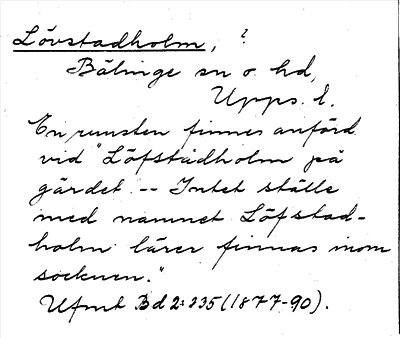 Lövstadholm, ?
Bälinge sn o. hd,
Upps. l.
En runsten finnes anförd
vid "Löfstadholm på
gärdet. -- Intet ställe
med namnet Löfstad-
holm lärer finnas inom
socknen."
Ufmt Bd 2:335 (1877-90).